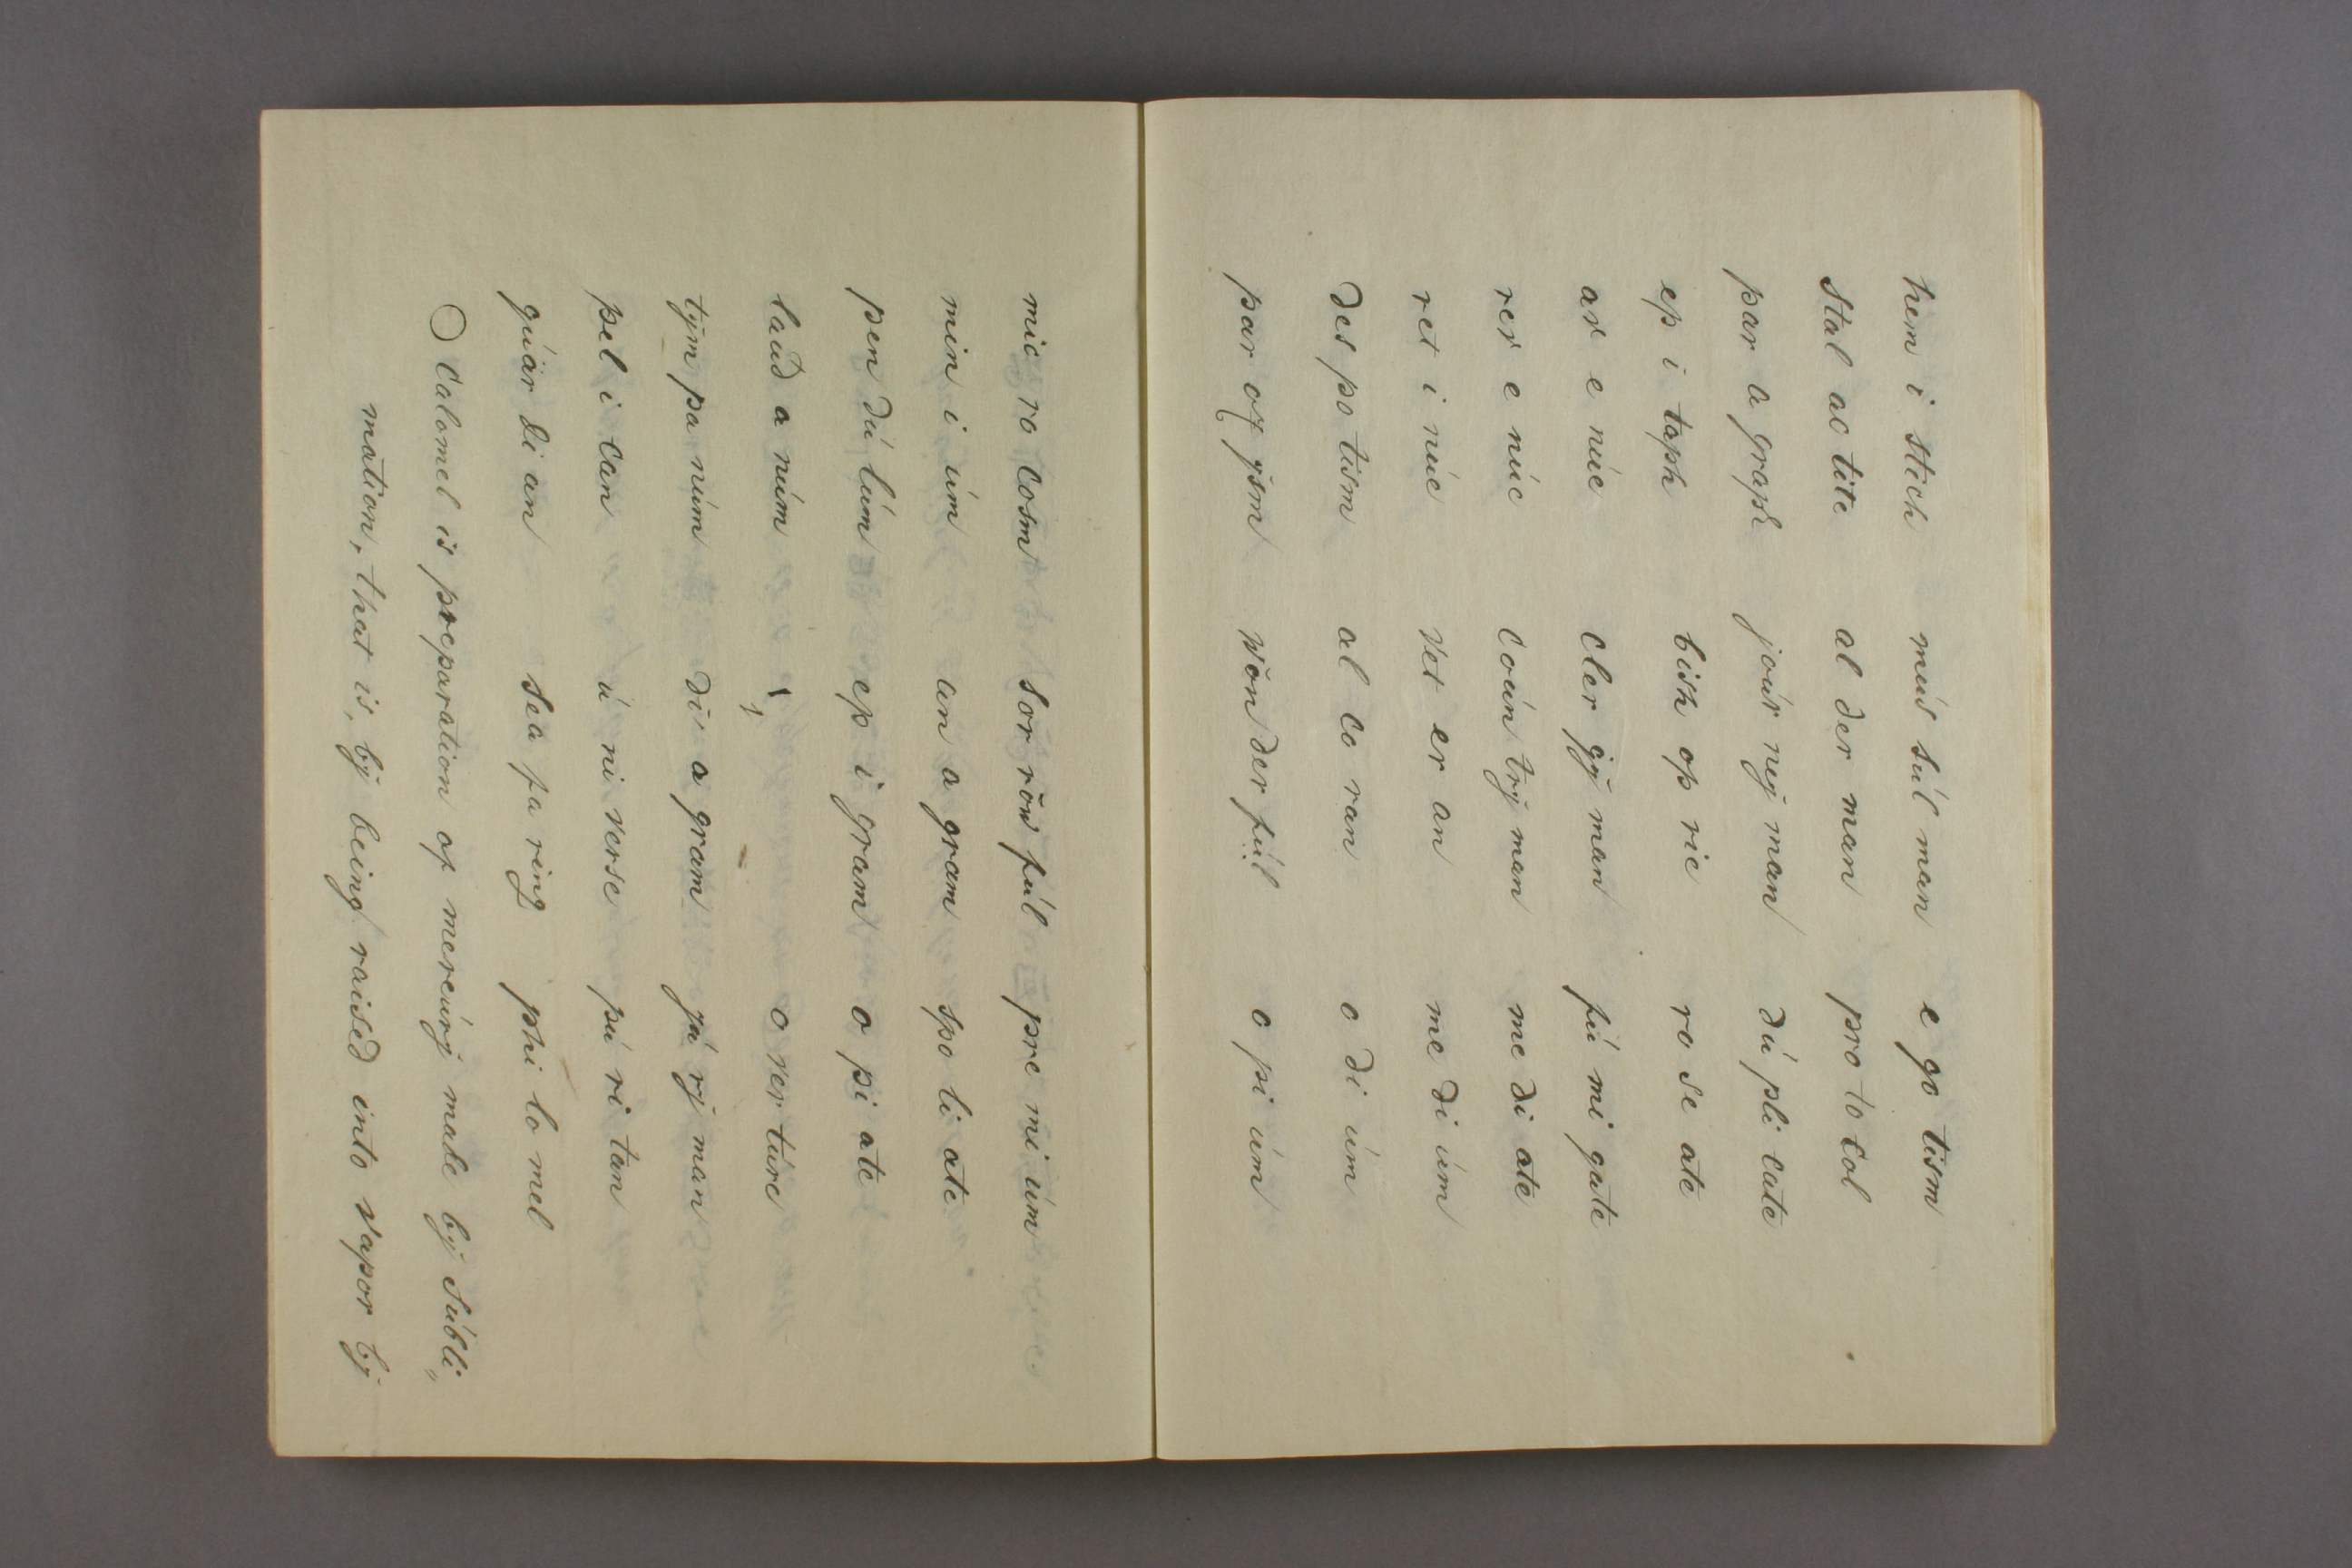 hem i stich mús súl man e go tism
stal ac tite al der man pro to col
par a graph joúr neÿ man dú pli cate
ep i taph bish op ric ro se ate
ar e núe cler gÿ man fú mi gate
rer e núe coún trÿ man me di ate
ret i núe vet er an me di úm
des po tism al co ran o di úm
par ox ÿsm wŏn der fúl o pi úm
mic ro cosm sor rŏw fúl pre mi úm
min i úm an a gram spo li ate
pen dú lúm ep i gram o pi ate
laud a núm o ver túre
tÿm pa núm di a gram já rÿ man
pel i can ú ni verse pú ri tan
gúar di an sea fa ring phi lo mel
Calomel is preparation of mercúrÿ made bÿ Súbli„
mation, that is, bÿ being raised into vapor bÿ